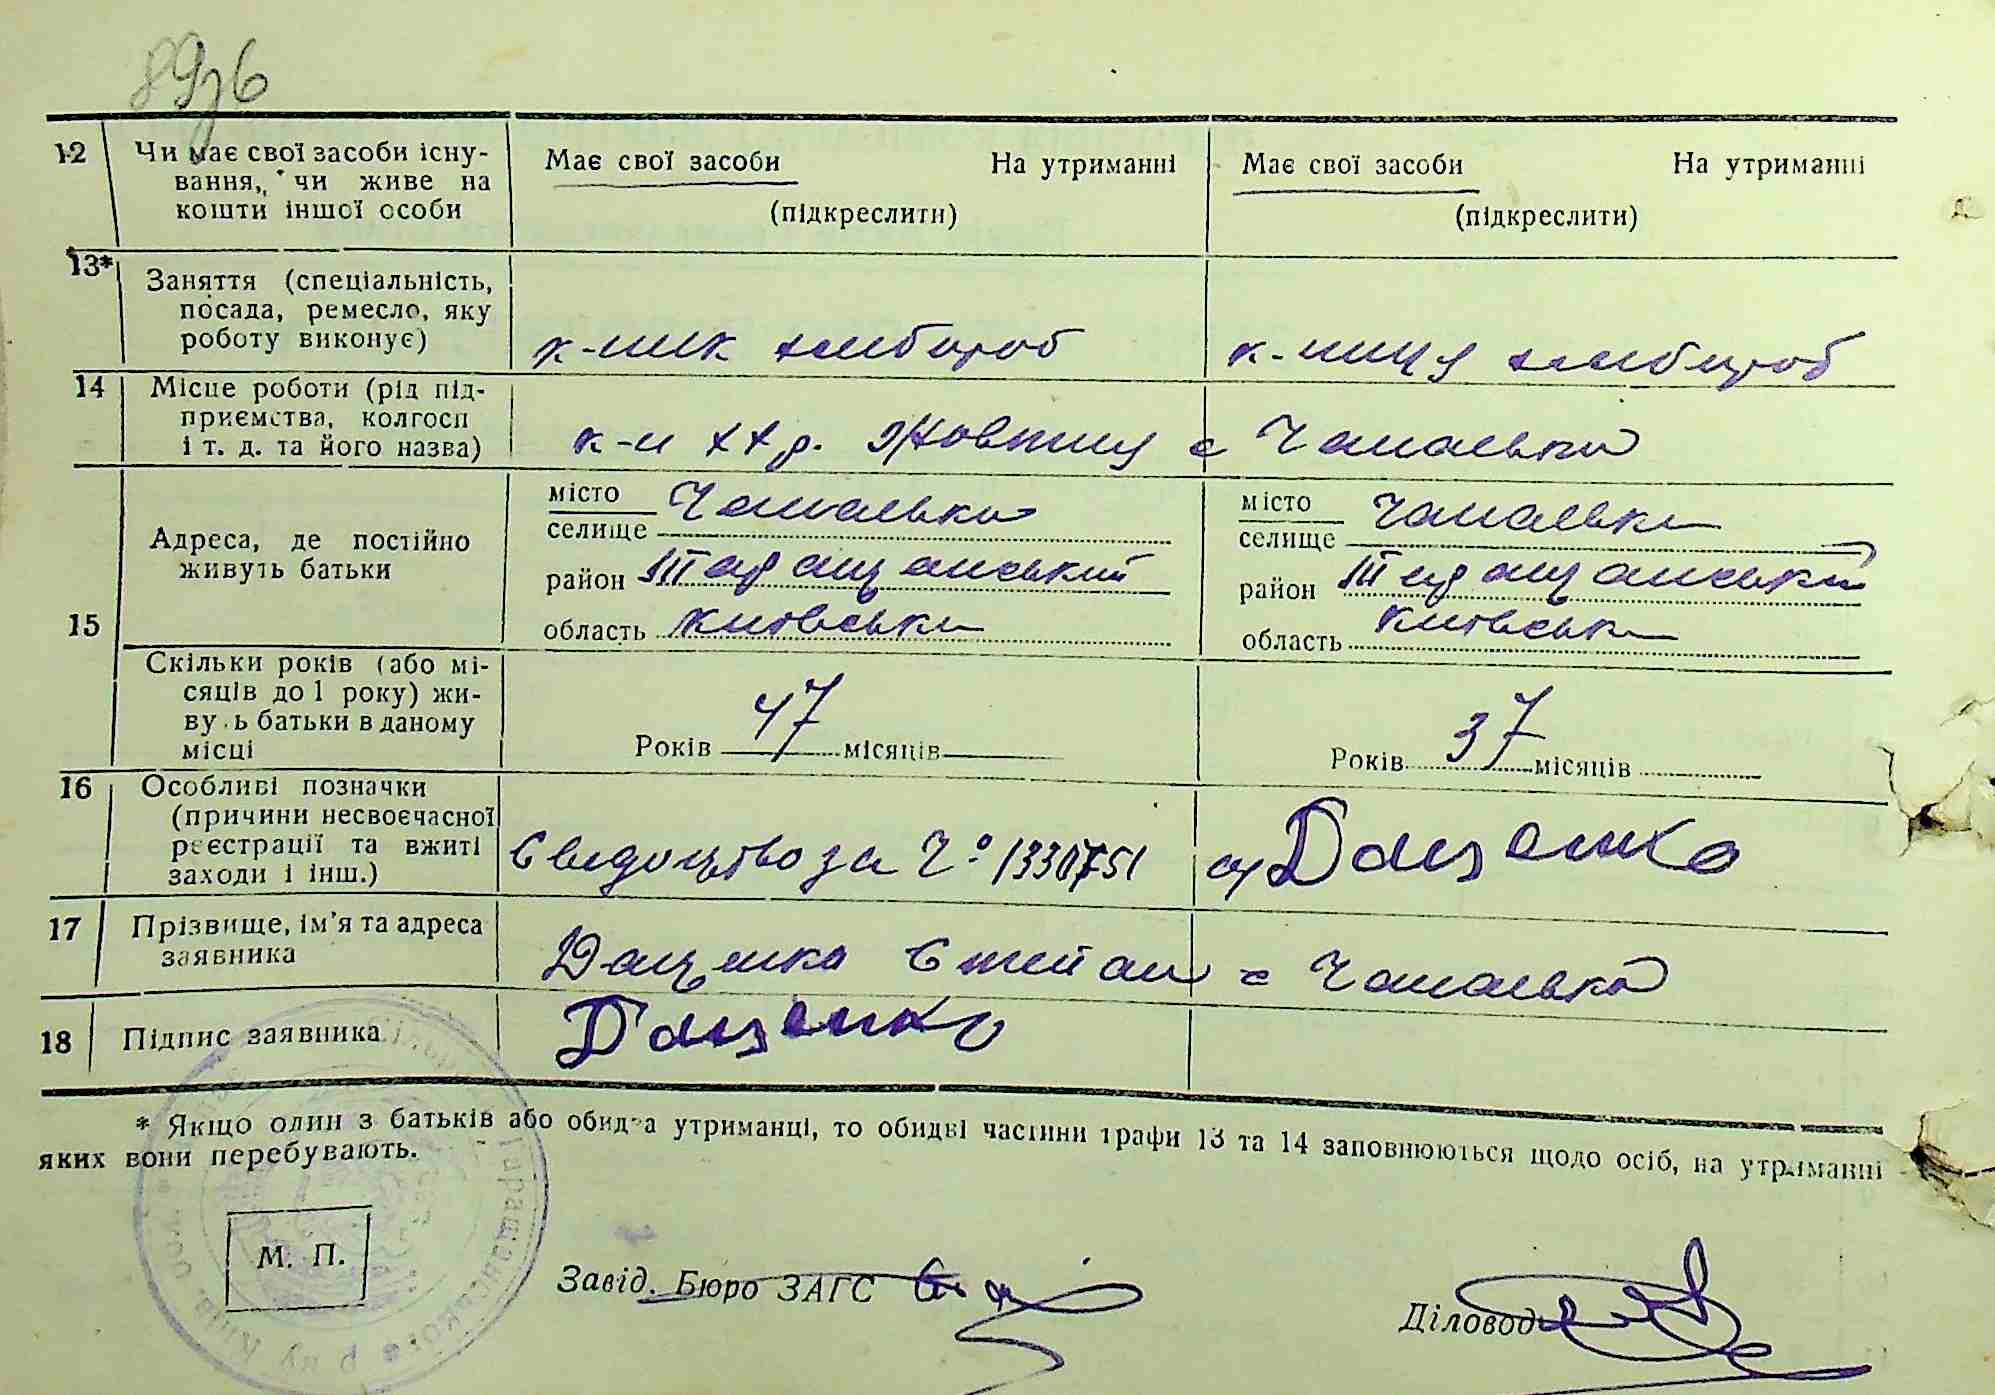 12 Чи має свої засоби існу-
вання, чи живе на
кошти іншої особи
Має свої засоби На утриманні
(підкреслити)
Має свої засоби На утриманні
(підкреслити)
13* Заняття (спеціальність,
посада, ремесло, яку
роботу виконує)
к-ник хлібороб
к-ниця хлібороб
14 Місце роботи (рід під-
приємства, колгосп
і т. д. та його назва)
к-п ХХ р. Жовтня с Чапаєвка
15 Адреса, де постійно
живуть батьки
місто
селище
район Таращанський
область Київська
місто
селище
район Таращанський
область Київська
Скільки років (або мі-
сяців до 1 року) жи-
ву ь батьки в даному
місці
Років 47 місяців
Років 37 місяців
16 Особливі позначки
(причини несвоєчасної
реєстрації та вжиті
заходи і інш.)
Свидоцтво за Ч° 1330751
Даценко
17 Прізвище, ім'я та адреса
заявника
Даценко Степан с
18 Підпис заявника
Даценко
* Якщо один з батьків або обидва утриманці, то обидві частини графи 13 та 14 заповнюються щодо осіб, на утриманні
яких вони перебувають.
М. П.
Завід. Бюро ЗАГС
Діловод